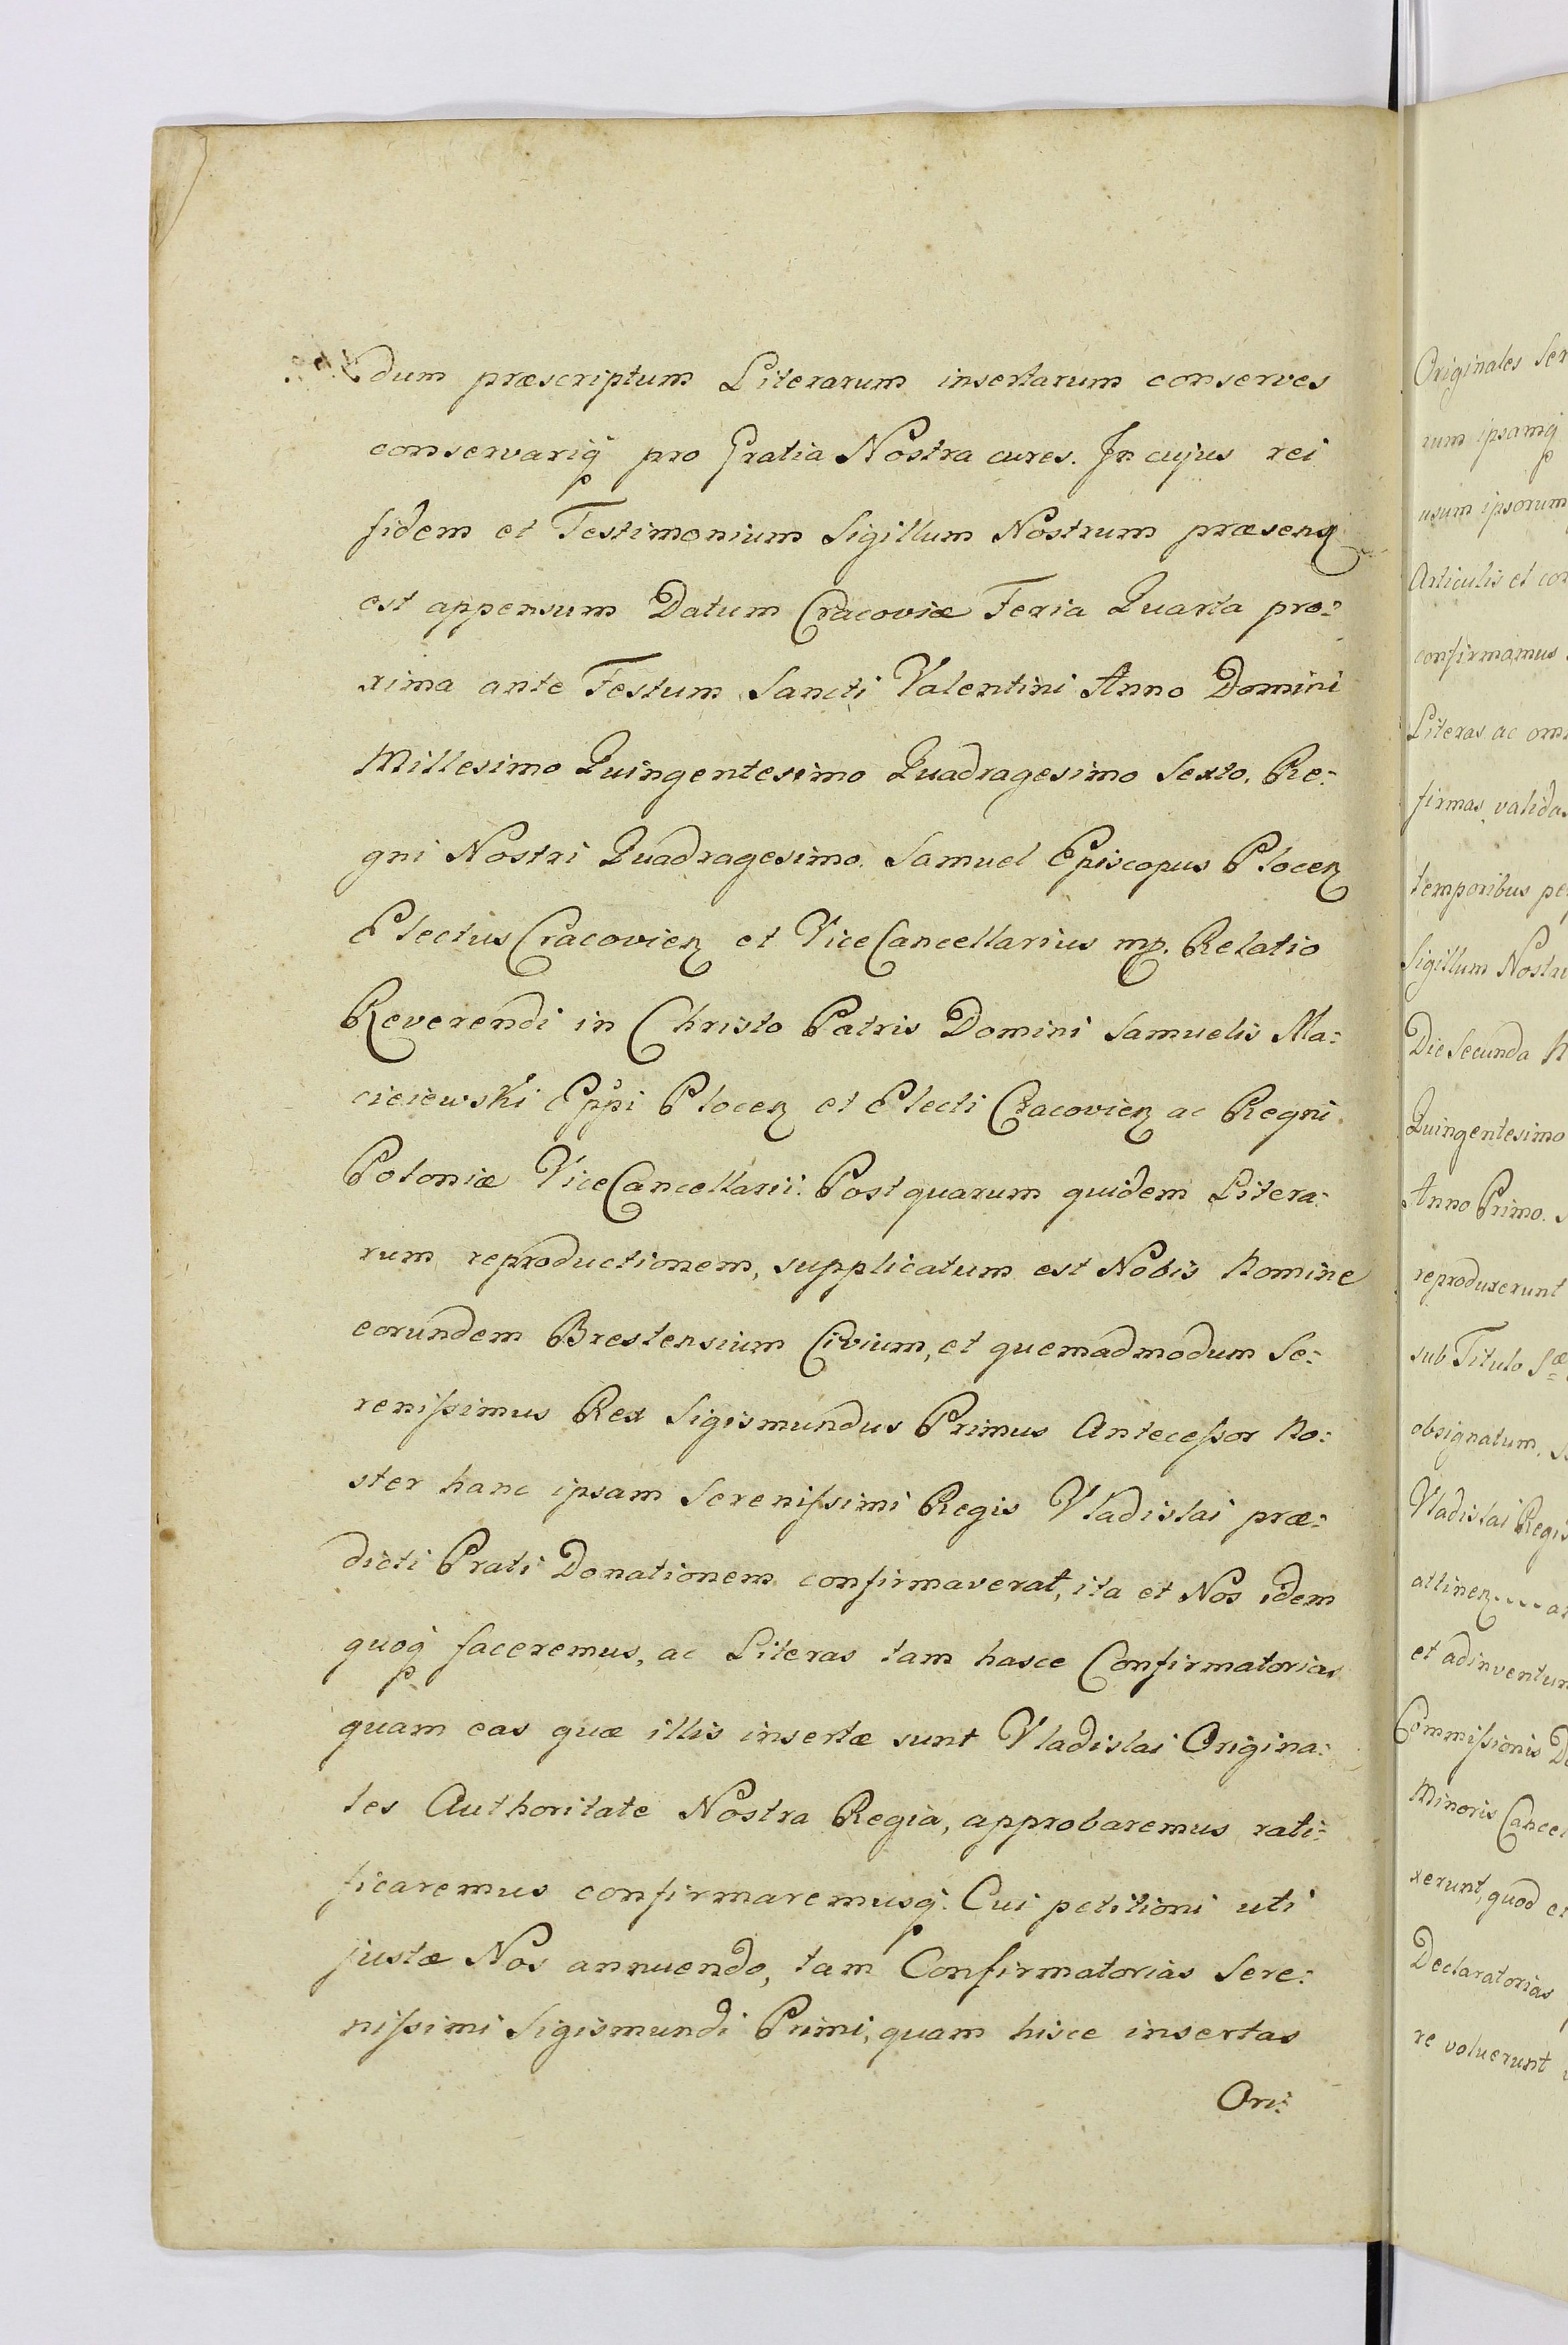 dum præscriptum Literarum insertarum conserves
conservariq₃ pro Gratia Nostra cures. In cujus rei
fidem et Testimonium Sigillum Nostrum præsenꝫ
est appensum Datum Cracoviæ Feria Quarta pro:
xima ante Festum Sancti Valentini Anno Domini
Millesimo Quingentesimo Quadragesimo Sexto. Re:
gni Nostri Quadragesimo. Samuel Episcopus Plocenꝫ
Electus Cracovienꝫ et ViceCancellarius mp. Relatio
Reverendi in Christo Patris Domini Samuelis Ma:
cieiewski Eppi Plocenꝫ et Electi Cracovienꝫ ac Regni
Poloniæ ViceCancellarii. Post quarum quidem Litera:
rum reproductionem, supplicatum est Nobis Nomine
eorundem Brestensium Civium, et quemadmodum Se:
renißimus Rex Sigismundus Primus Anteceßor No:
ster hanc ipsam Serenißimi Regis Vladislai præ:
dicti Prati Donationem confirmaverat, ita et Nos idem
quoq₃ faceremus, ac Literas tam hasce Confirmatorias
quam eas quæ illis insertæ sunt Vladislai Origina:
les Authoritate Nostra Regia, approbaremus rati:
ficaremus confirmaremusq₃. Cui petitioni uti
justæ Nos annuendo, tam Confirmatorias Sere:
nißimi Sigismundi Primi, quam hisce insertas
Ori:
Originales Ser
rum ipsamq₃
usum ipsorum
Articulis et con
confirmamus
Literas ac om
firmas validas
temporibus pe
Sigillum Nostru
Die Secunda
Quingentesimo
Anno Primo.
reproduxerunt
sub Titulo Sæ
obsignatum.
Vladislai Regis
attinenꝫ----
et adinventum
Commißionis De
Minoris Cancel
xerunt, quod et
Declaratorias
re voluerunt